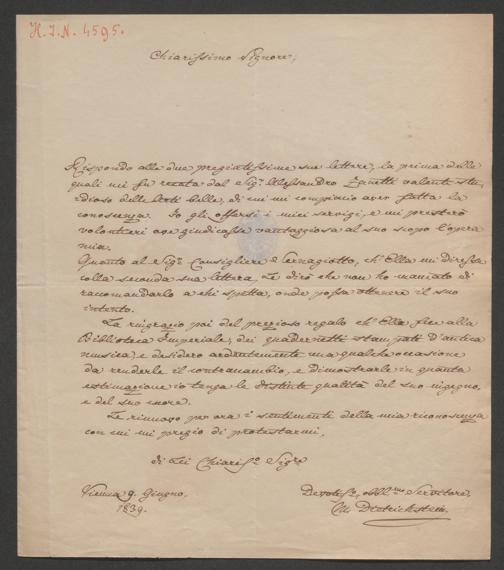 H. I. N. 4595.
Chiarissimo Signore;
Rispondo alle due pregiatissime sue lettere, la prima delle
quali mi fu recata dal Sigr. Alessandro Zanetti valente stu-
dioso delle Arti belle, di cui mi compiaccio aver fatta la
conoscenza. Io gli offersi i miei servigi, e mi presterò
volontieri ove giudicasse vantaggiosa al suo scopo l'opera
mia.
Quanto al Sigr. Consigliere de ch'Ella mi diresse
colla seconda sua lettera, Le dirò che non ho mancato di
racomandarlo a chi spetta, onde possa ottenere il suo
intento.
La ringrazio poi del prezioso regalo ch'Ella fece alla
Biblioteca Imperiale, dei quadernetti stampati d'antica
musica, e desidero ardentemente una qualche occasione
da renderle il contracambio, e dimostrarle in quanta
estimazione io tenga le distinte qualità del suo ingegno,
e del suo cuore.
Le rinnovo per ora i sentimenti della mia riconoscenza
con cui mi pregio di protestarmi,
di Lei Chiariso. Sigre
Vienna 9. Giugno.
1839.
Devotiso. obblmo Servitore,
Dietrichstein.